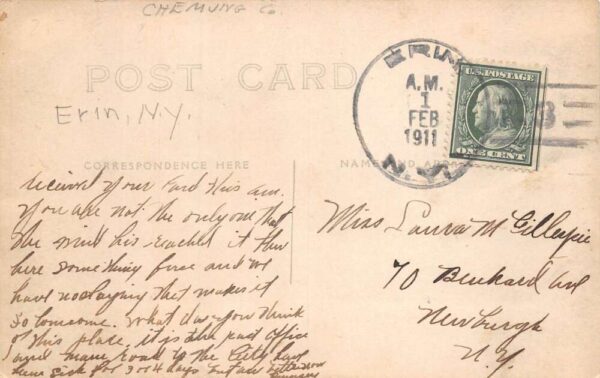 CHEMUNG Co.
POST CARD
Erin, N.Y.
CORRESPONDENCE HERE
NAME AND ADDRESS
ERIN
A.M.
1
FEB
1911
N.Y.
U.S. POSTAGE
ONE CENT
received your Card this am.
You are not the only one that
the wind has reached it
here something fierce and we
have no slaying that makes it
so lonesome. What do you think
of this place, it is the post office
and main road to the City had
been sick for 3 or 4 days but am better now
Miss Laura M Gillespie
70 Benkard Ave
Newburgh
N.Y.